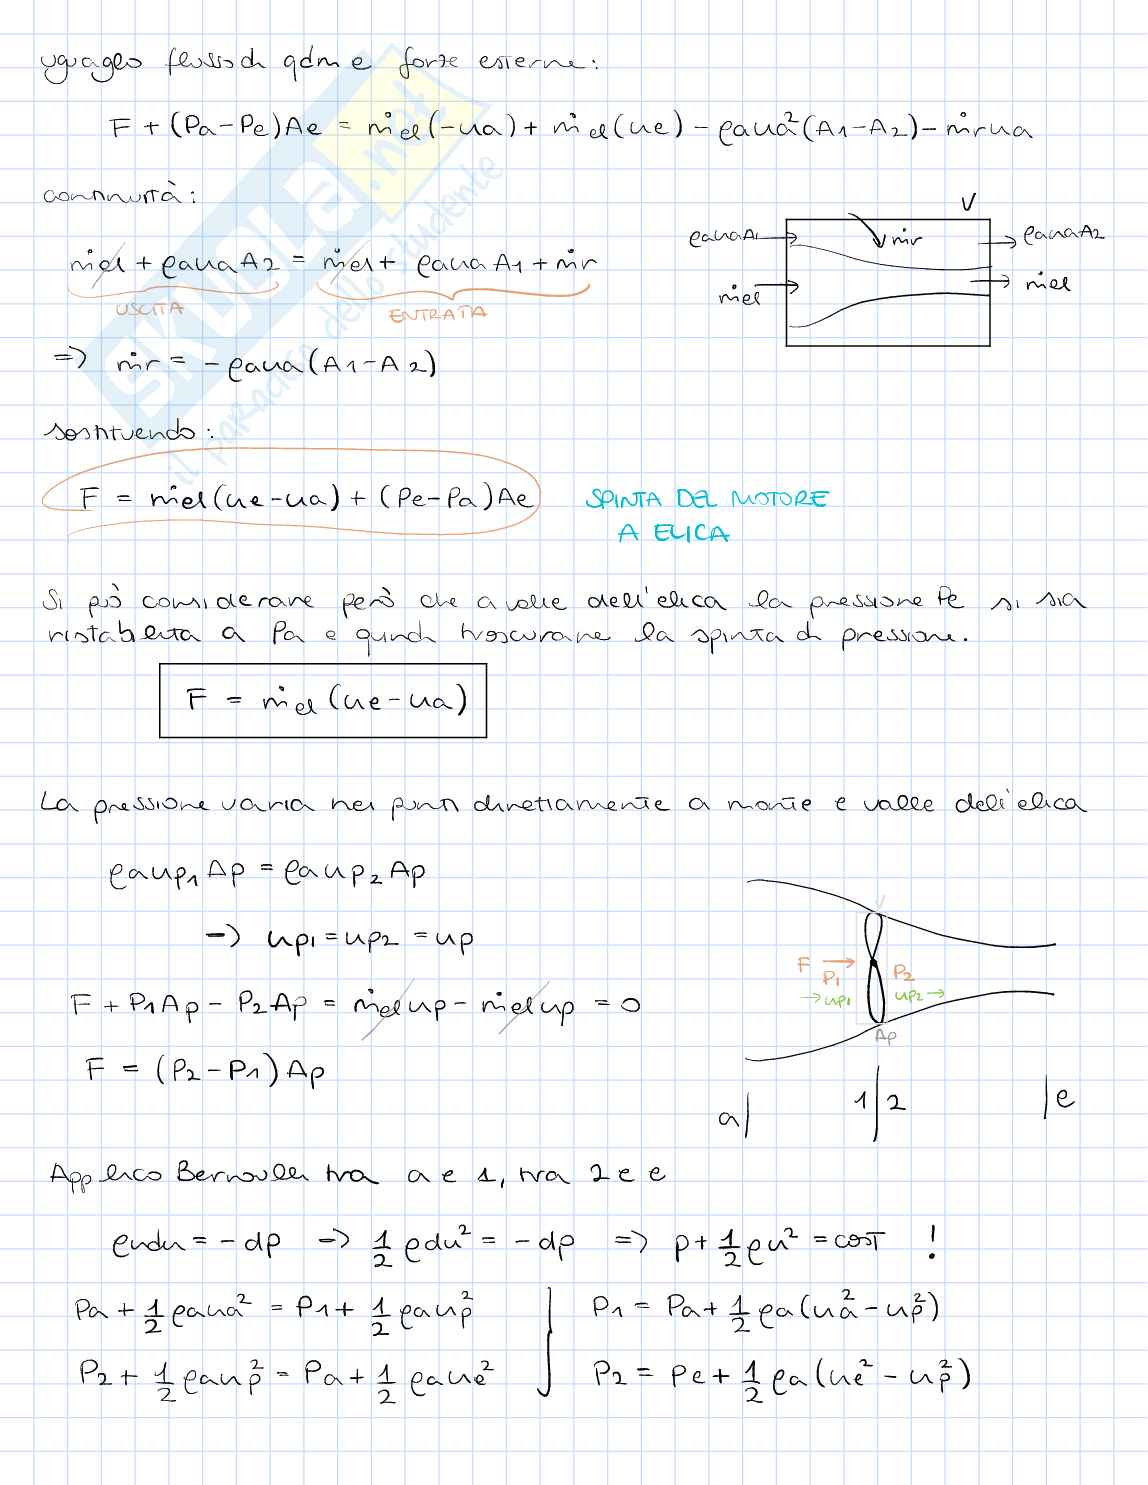 uguaglio flusso di qdm e forze esterne:
F + (Pa-Pe)Ae = ṁel(-ua) + ṁel(ue) - ρaua²(A1-A2) - ṁrua
continuità:
ṁel + ρauaA2 = ṁel + ρauaA1 + ṁr
USCITA ENTRATA
=> ṁr = -ρaua(A1-A2)
V
ρauaA1 ṁr ρauaA2
ṁel ṁel
sostituendo:
F = ṁel(ue-ua) + (Pe-Pa)Ae
SPINTA DEL MOTORE
A ELICA
Si può considerare però che a valle dell'elica la pressione Pe si sia
ristabilita a Pa e quindi trascurare la spinta di pressione.
F = ṁel (ue-ua)
La pressione varia nei punti direttamente a monte e valle dell'elica
ρaup1Ap = ρaup2Ap
-> up1 = up2 = up
F + P1Ap - P2Ap = ṁelup - ṁelup = 0
F = (P2-P1)Ap
V
F P1 P2
up1 up2
Ap
a 1 2 e
Applico Bernoulli tra a e 1, tra 2 e e
ρudu = -dp -> 1/2 ρdu² = -dp => p + 1/2 ρu² = cost !
Pa + 1/2 ρaua² = P1 + 1/2 ρaup² P1 = Pa + 1/2 ρa(ua² - up²)
P2 + 1/2 ρaup² = Pa + 1/2 ρaue² P2 = Pe + 1/2 ρa(ue² - up²)
SKUOLA.net
il paradiso dello studente